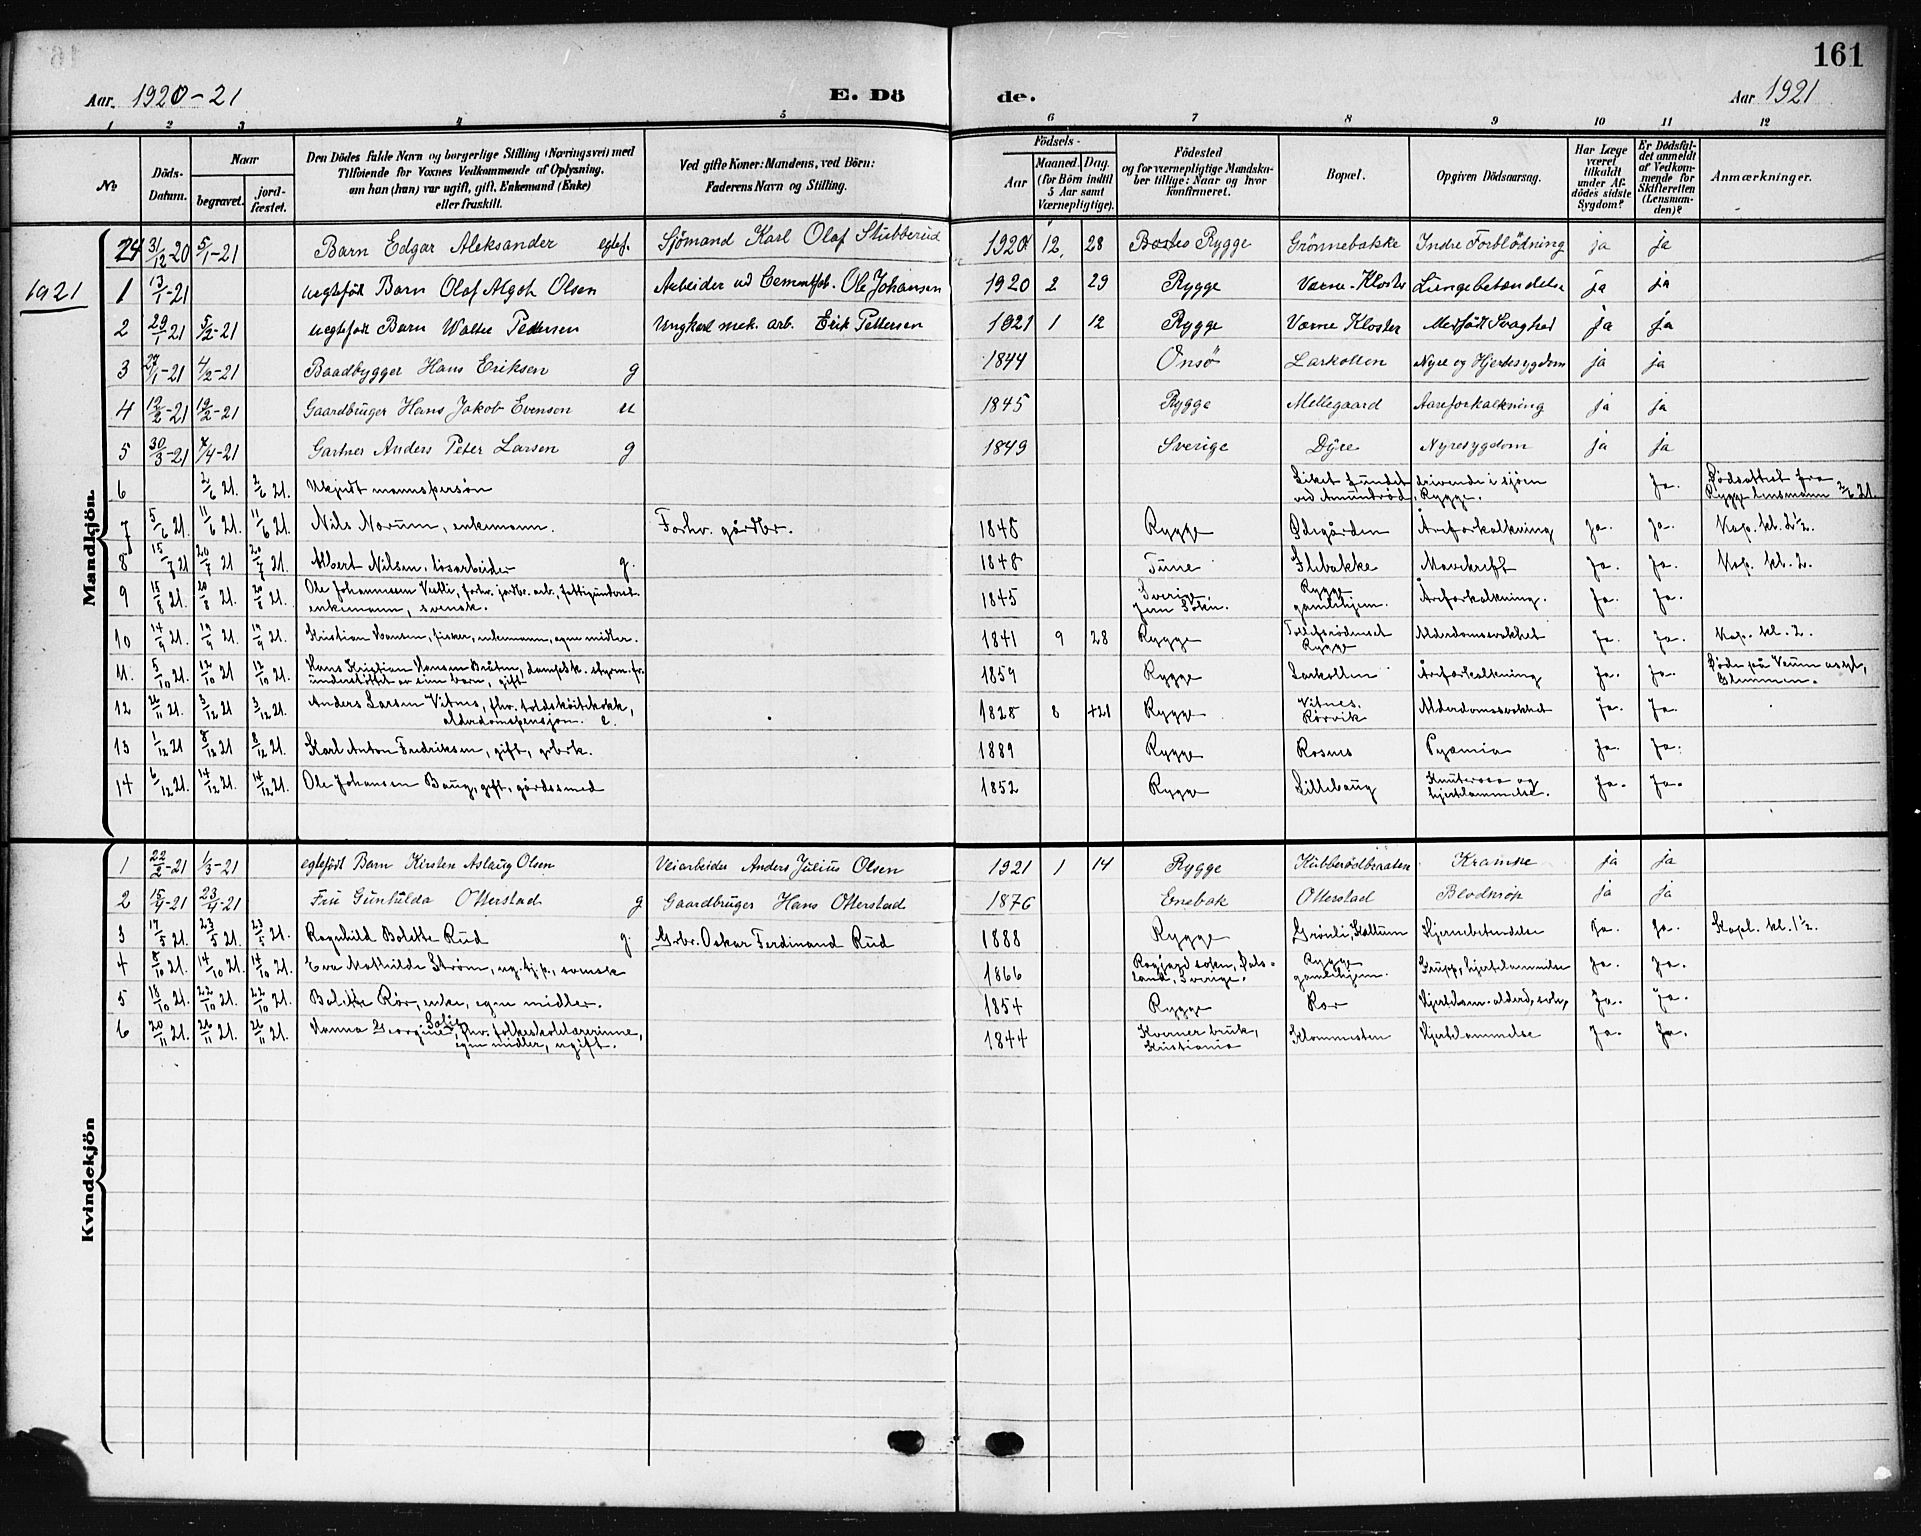 161
Aar. 1920-21 E. Dö de. Aar 1921
1 2 3 4 5 6 7 8 9 10 11 12
No Döds-Datum. Naar begravet. jord-fæstet. Den Dödes fulde Navn og borgerlige Stilling (Næringsvei) med Tilföiende for Voxnes Vedkommende af Oplysning, om han (hun) var ugift, gift, Enkemand (Enke) eller fraskilt. Ved gifte Koner: Mandens, ved Börn: Faderens Navn og Stilling. Födsels- Aar Maaned. Dag. (for Börn indtil 5 Aar samt Værnepligtige). Födested og for værnepligtige Mandskaber tillige: Naar og hvor konfirmeret. Bopæl. Opgiven Dödsaarsag. Har Læge været tilkaldt under Afdödes sidste Sygdom? Er Dödsfaldet anmeldt af Vedkommende for Skifteretten (Lensmanden)? Anmærkninger.
Mandkjön
24 31/12-20 5/1-21 Barn Edgar Aleksander egtef. Sjömand Karl Olaf Stubberud 1920 12 28 Rygge Grönnebakke Indre Forblödning ja ja
1921
1 13/1-21 uegtefödt Barn Olaf Algoth Olsen Arbeider ved Cementfab. Ole Johansen 1920 2 29 Rygge Værne-Kloster Lungebetændelse ja ja
2 29/1-21 5/2-21 uegtefödt Barn Walter Pedersen Ungkarl mek. arb. Erik Pettersen 1921 1 12 Rygge Værne Kloster Medfödt Svaghed ja ja
3 27/1-21 4/2-21 Baadbygger Hans Eriksen g 1844 Onsö Larkollen Nyre og Hjertesygdom ja ja
4 12/2-21 19/2-21 Gaardbruger Hans Jakob Evensen u 1845 Rygge Mellegaard Aareforkalkning ja ja
5 30/3-21 7/4-21 Gartner Anders Peter Larsen g 1849 Sverige Dyre Nyresygdom ja ja
6 2/6 21. 2/6 21. Ukjendt mannsperson Liket fundet drivende i sjöen ved Amundröd, Rygge. Ja. Dödsattest fra Rygge lensmann 2/6 21.
7 5/6 21. 11/6 21. 11/6 21. Nils Norum, enkemann. Forhv. gårdbr. 1848 Rygge Ødegården Åreforkalkning Ja. Ja. Kap. kl. 2½.
8 15/7 21 20/7 21 20/7 21. Albert Nilsen, løsarbeider g. 1848 Tune Stebakke Mavekreft Ja. Ja. Kap. kl. 2.
9 15/8 21. 20/8 21. 20/8 21. Ole Johannessen Vestli, forhv. jordbr. arb., fattigunderst. enkemann, svensk. 1845 Sverige, Rygge gamlehjem. Åreforkalkning. Ja. Ja.
10 14/9 21. 19/9 21. 19/9 21. Kristian Hansen, fisker, enkemann, egne midler. 1841 9 28 Rygge Rygge Alderdomssvakhet Ja. Ja. Kap. kl. 2.
11. 5/10 21. 12/10 21 12/10 21. Hans Kristian Hansen Bråten, dampsk. styrm. fv. understöttet av sine barn, gift 1859 Rygge Larkollen Åreforkalkning Ja. Ja. Döde på Veum asyl, Glemmen.
12 26/11 21. 3/12 21 3/12 21. Anders Larsen Vitnes, fhv. toldskøitekokk, alderdomspensjon. e. 1828 8 21 Rygge Vitnes, Rørvik Alderdomssvakhet Ja. Ja.
13 1/12 21 8/12 21 8/12 21. Karl Anton Fredriksen, gift, grbrk. 1889 Rygge Rosnes Pyæmia Ja. Ja.
14 6/12 21. 14/12 21. 14/12 21. Ole Johansen Baug, gift, gårdssmed 1852 Rygge Lillebaug og hjertelammelse. Ja. Ja.
Kvindekjön
1 22/2-21 1/3-21 egtefödt Barn Kirsten Aslaug Olsen Veiarbeider Anders Julius Olsen 1921 1 14 Rygge Kubberödbraaten Krampe ja ja
2 15/4-21 23/4-21 Fru Gunhilda Otterstad g Gaardbruger Hans Otterstad 1876 Enebak Otterstad Blodtröp ja ja
3 17/5 21. 23/5 21. 23/5 21. Ragnhild Bolette Rud g. Grbr. Oskar Ferdinand Rud 1888 Rygge Grönli, Kallum Hjernebetendelse Ja. Ja. Kapl. kl. 1½.
4 8/10 21. 14/10 21. 14/10 21. Eva Mathilde Strøm, ug. tj.p., svensk 1866 sokn, Dalsland, Sverige. Rygge gamlehjem. Krupp, hjertelammelse Ja. Ja.
5 18/10 21. 22/10 21. 22/10 21. Bolette Rör, enke, egne midler. 1854 Rygge Rör Ja. Ja.
6 20/11 21. 26/11 21. 26/11 21. Hanna Georgine fhv. folkeskolelærerinne, egne midler, ugift. 1844 Kværner bruk, Kristiania Klommesten Hjertelammelse Ja. Ja.